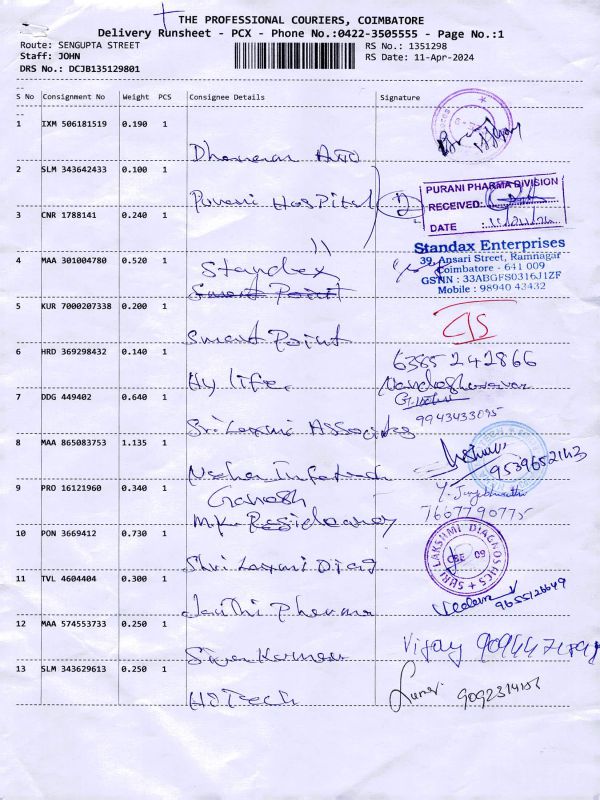 THE PROFESSIONAL COURIERS, COIMBATORE
Delivery Runsheet - PCX - Phone No.:0422-3505555 - Page No.:1
Route: SENGUPTA STREET
RS No.: 1351298
Staff: JOHN
RS Date: 11-Apr-2024
DRS No.: DCJB135129801
S No Consignment No Weight PCS Consignee Details Signature
1 IXM 506181519 0.190 1
Auto
2 SLM 343642433 0.100 1
Purani Hospital
PURANI PHARMA DIVISION
RECEIVED:
DATE
3 CNR 1788141 0.240 1
"
Standax Enterprises
39, Ansari Street, Ramnagar
Coimbatore - 641 009
GSTNN : 33ABGFS0316J1ZF
Mobile : 98940 43432
4 MAA 301004780 0.520 1
Standex
Smart Point
5 KUR 7000207338 0.200 1
Smart Point
6 HRD 369298432 0.140 1
Hy life
6385 242866
7 DDG 449402 0.640 1
Sri Laxmi Associates
9943433095
8 MAA 865083753 1.135 1
Neha Infotech
9539652143
9 PRO 16121960 0.340 1
Ganesh
7667790775
10 PON 3669412 0.730 1
Shri Laxmi Diag
SRI LAKSHMI DIAGNOSTICS
CBE 09
11 TVL 4604404 0.300 1
Pharma
9655126649
12 MAA 574553733 0.250 1
Siva Kumar
Vijay
13 SLM 343629613 0.250 1
Hi Tech